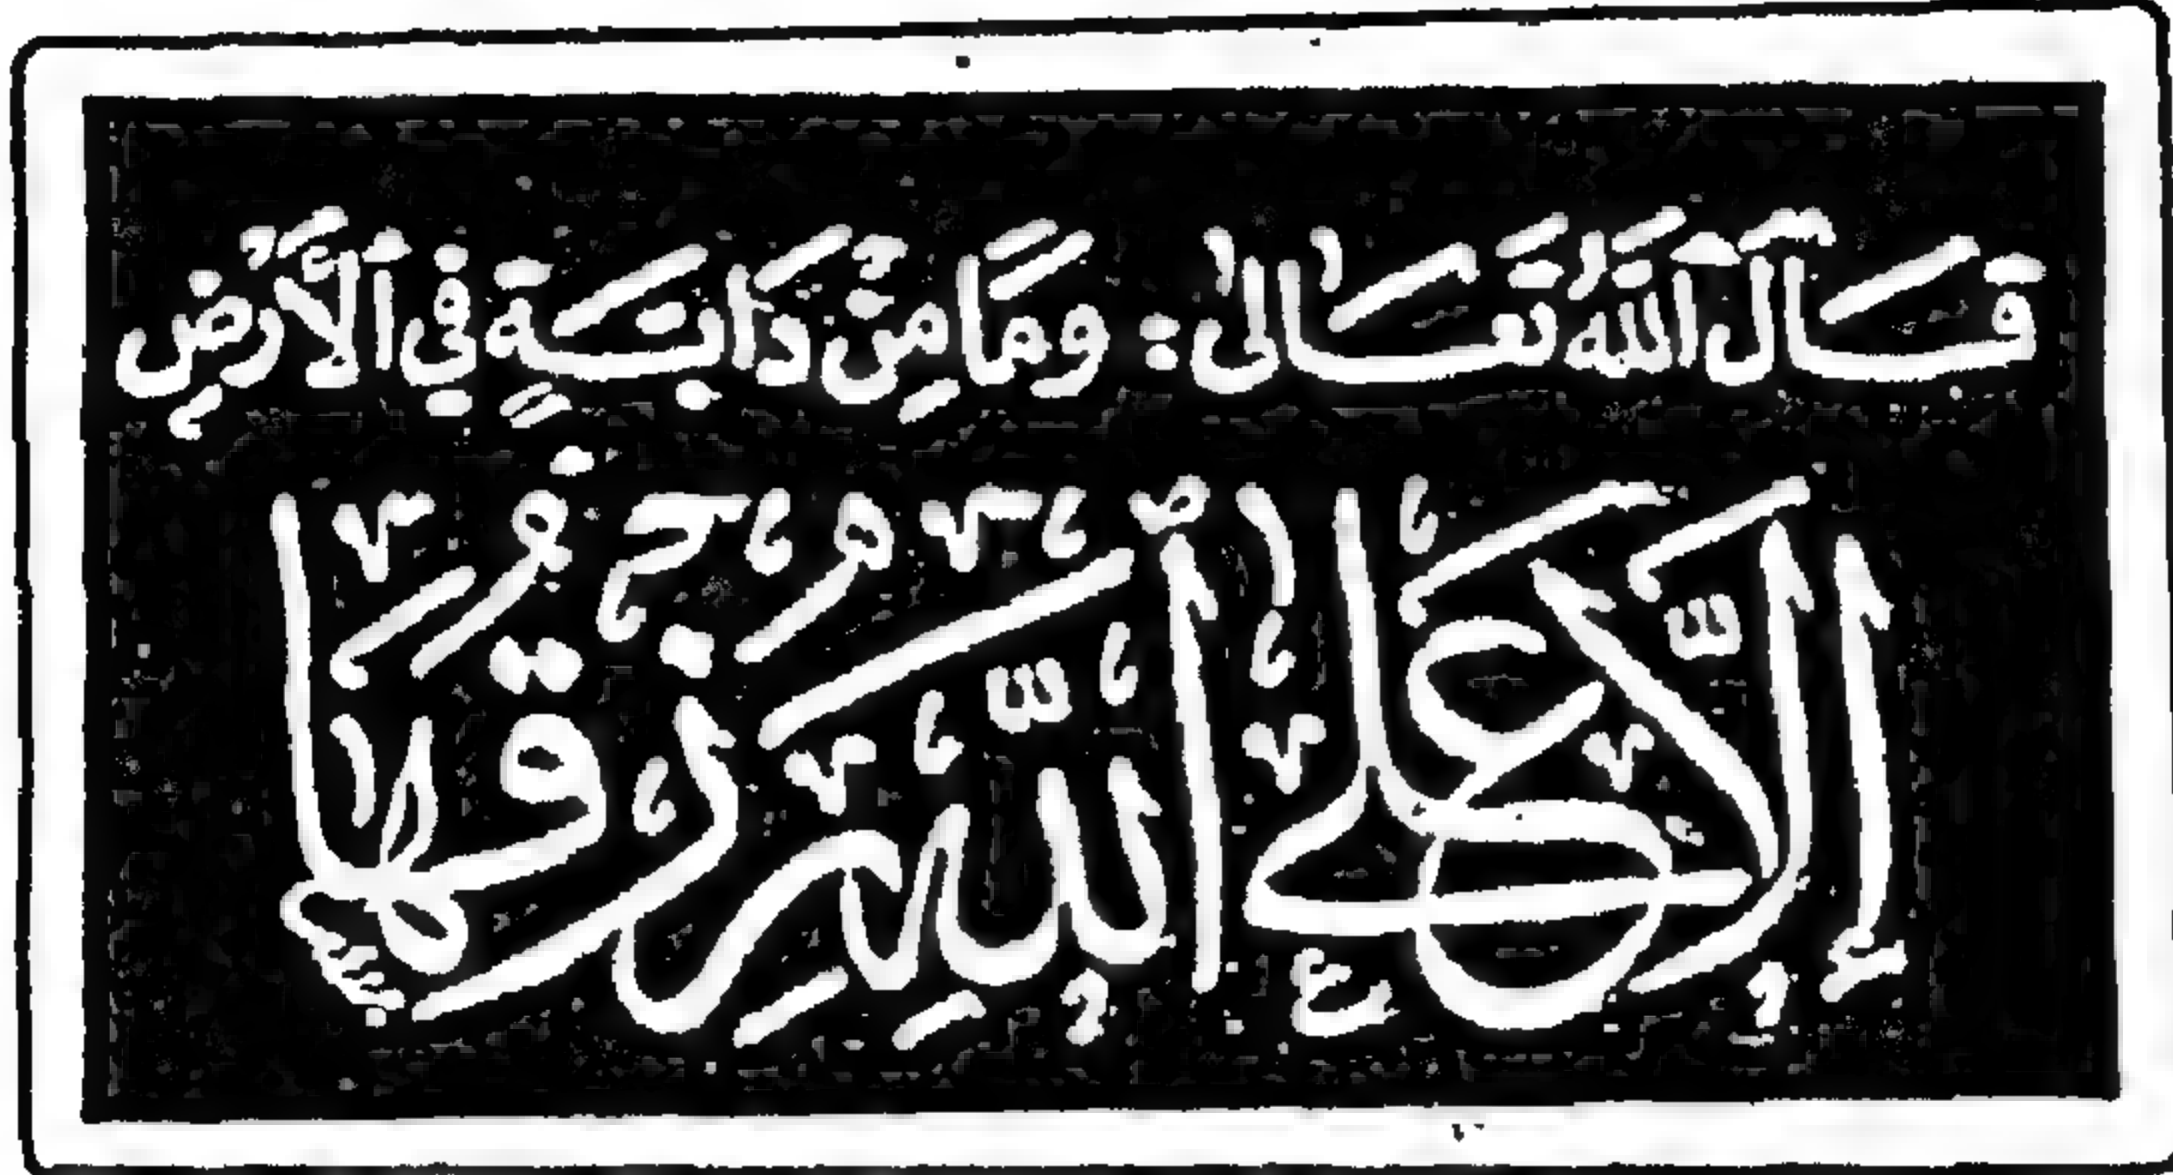 قَالَ اللّٰهُ تَعَالىٰ : وَمَا مِنْ دَابَّةٍ فِي الْأَرْضِ
إِلَّا عَلَى اللّٰهِ رِزْقُهَا